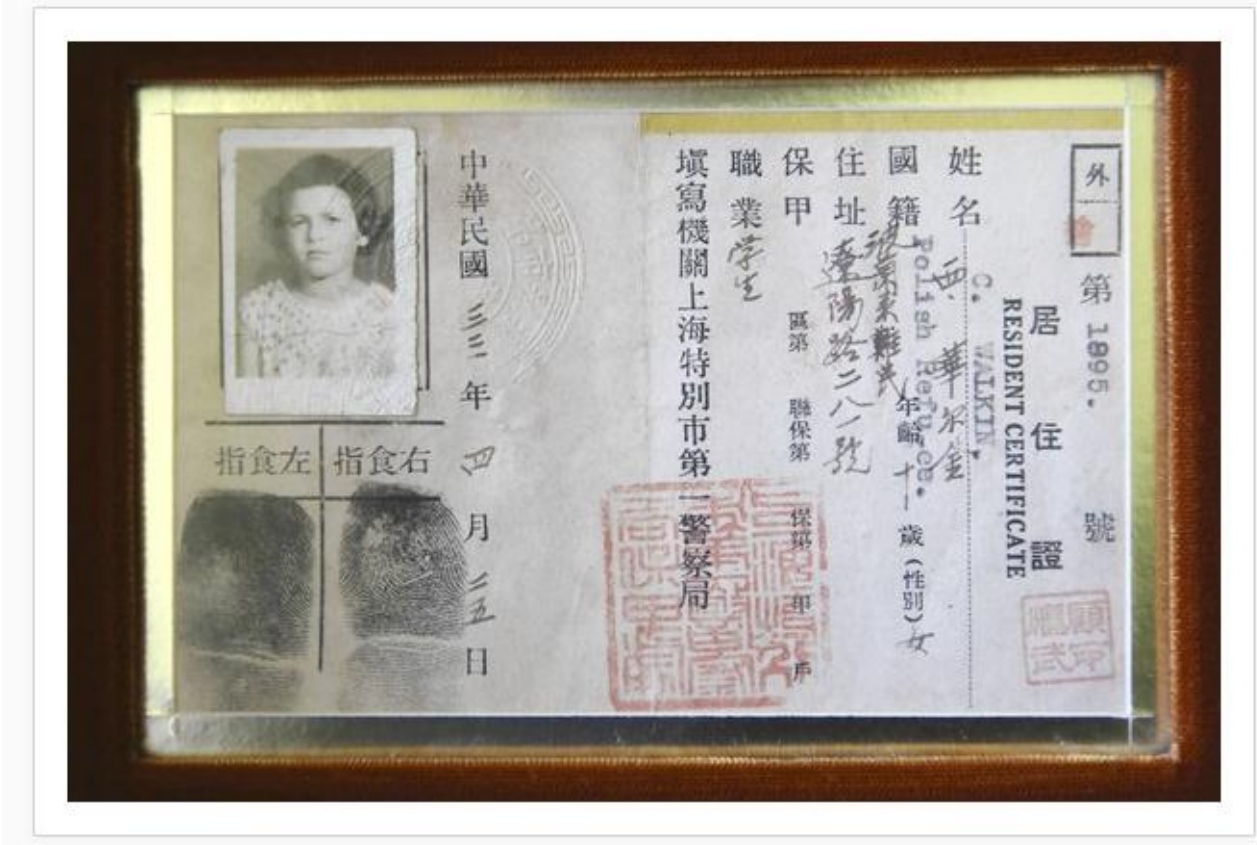 外
第 1895. 號
居住證
RESIDENT CERTIFICATE
C. WALKIN.
姓名 西 華尔金
Polish Refugee.
國籍 難民 年齡 十一 歲 (性別) 女
住址 遼陽路二八 號
保甲 區第 聯保第 保第 甲 戶
職業 学生
填寫機關上海特別市第一警察局
中華民國 三三 年 四 月 二五 日
右食指
左食指